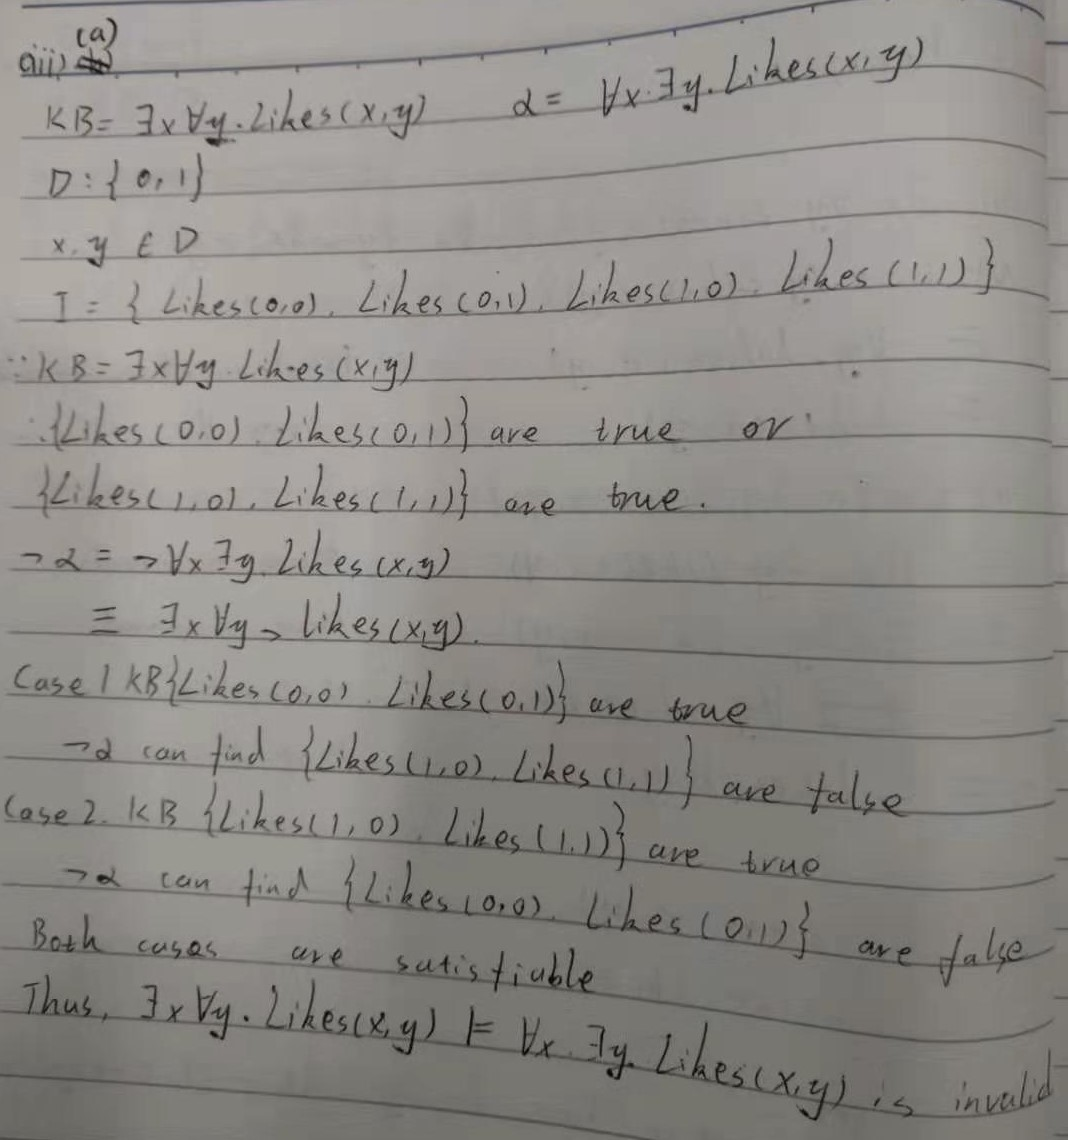 (a)
aiii)
KB= ∃x∀y.Likes(x,y) α= ∀x.∃y.Likes(x,y)
D:{0,1}
x.y ∈ D
I = { Likes(0,0). Likes(0,1). Likes(1,0). Likes(1,1)}
∵KB=∃x∀y.Likes(x,y)
∴{Likes(0,0).Likes(0,1)} are true or
{Likes(1,0).Likes(1,1)} are true.
¬α = ¬∀x∃y.Likes(x,y)
≡ ∃x∀y¬Likes(x,y).
Case 1 KB{Likes(0,0).Likes(0,1)} are true
¬α can find {Likes(1,0).Likes(1,1)} are false
Case 2. KB {Likes(1,0).Likes(1,1)} are true
¬α can find {Likes(0,0).Likes(0,1)} are false
Both cases are satisfiable
Thus, ∃x∀y.Likes(x,y) ⊨ ∀x.∃y.Likes(x,y) is invalid